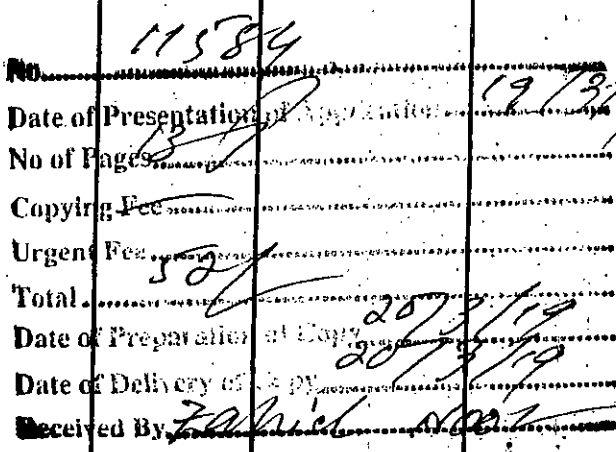 No. 11584
Date of Presentation of Application 19/3/
No of Pages 13
Copying Fee
Urgent Fee
Total 52/
Date of Preparation of Copy 20/3/19
Date of Delivery of Copy 20/3/19
Received By Zahid Noor